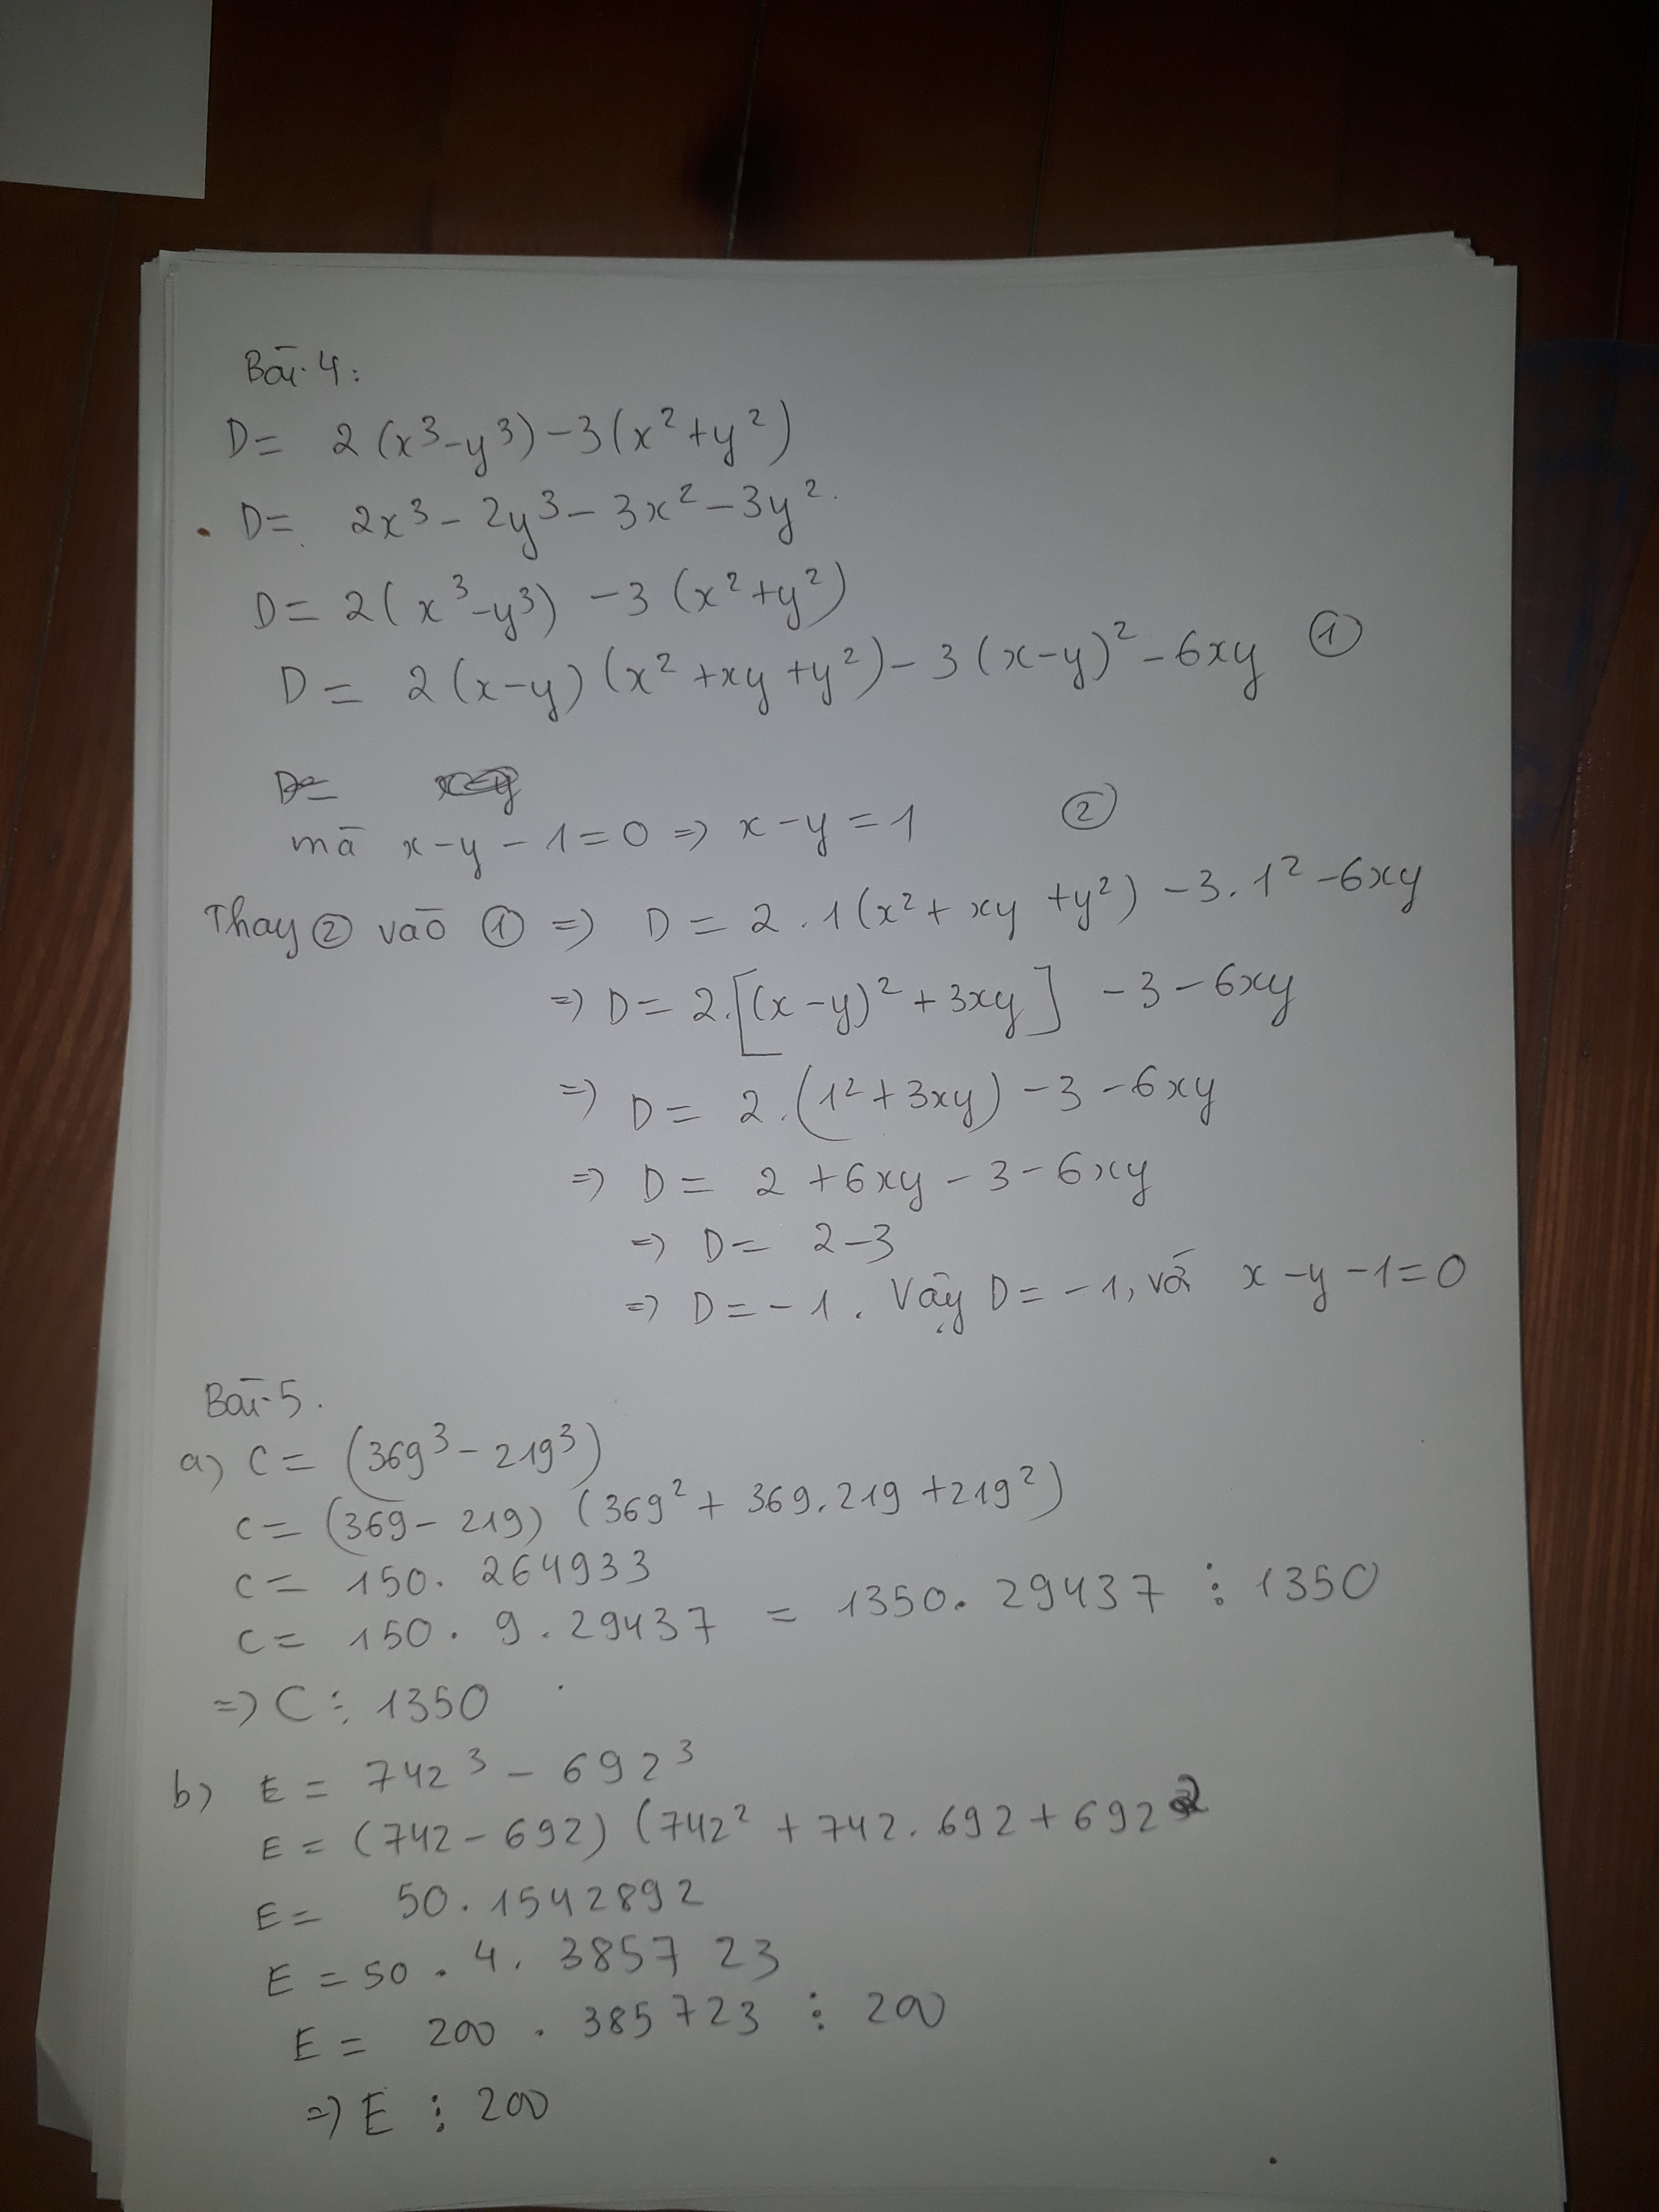 Bài 4:
D= 2(x³-y³)-3(x²+y²)
D= 2x³-2y³-3x²-3y².
D=2(x³-y³) -3(x²+y²)
D= 2(x-y)(x²+xy+y²)-3(x-y)²-6xy ①
D=
mà x-y-1=0 => x-y=1 ②
Thay ② vào ① => D= 2.1(x²+xy+y²) -3.1²-6xy
=> D=2.[(x-y)²+3xy] -3-6xy
=> D= 2.(1²+3xy) -3-6xy
=> D= 2+6xy-3-6xy
=> D= 2-3
=> D=-1. Vậy D=-1, và x-y-1=0
Bài 5.
a) C= (369³-219³)
C= (369-219) (369²+369.219+219²)
C= 150. 264933
C= 150. 9. 29437 = 1350. 29437 ⋮ 1350
=> C ⋮ 1350
b) E= 742³-692³
E= (742-692) (742²+742.692+692²
E= 50.1542892
E=50. 4. 385723
E= 200. 385723 ⋮ 200
=> E ⋮ 200